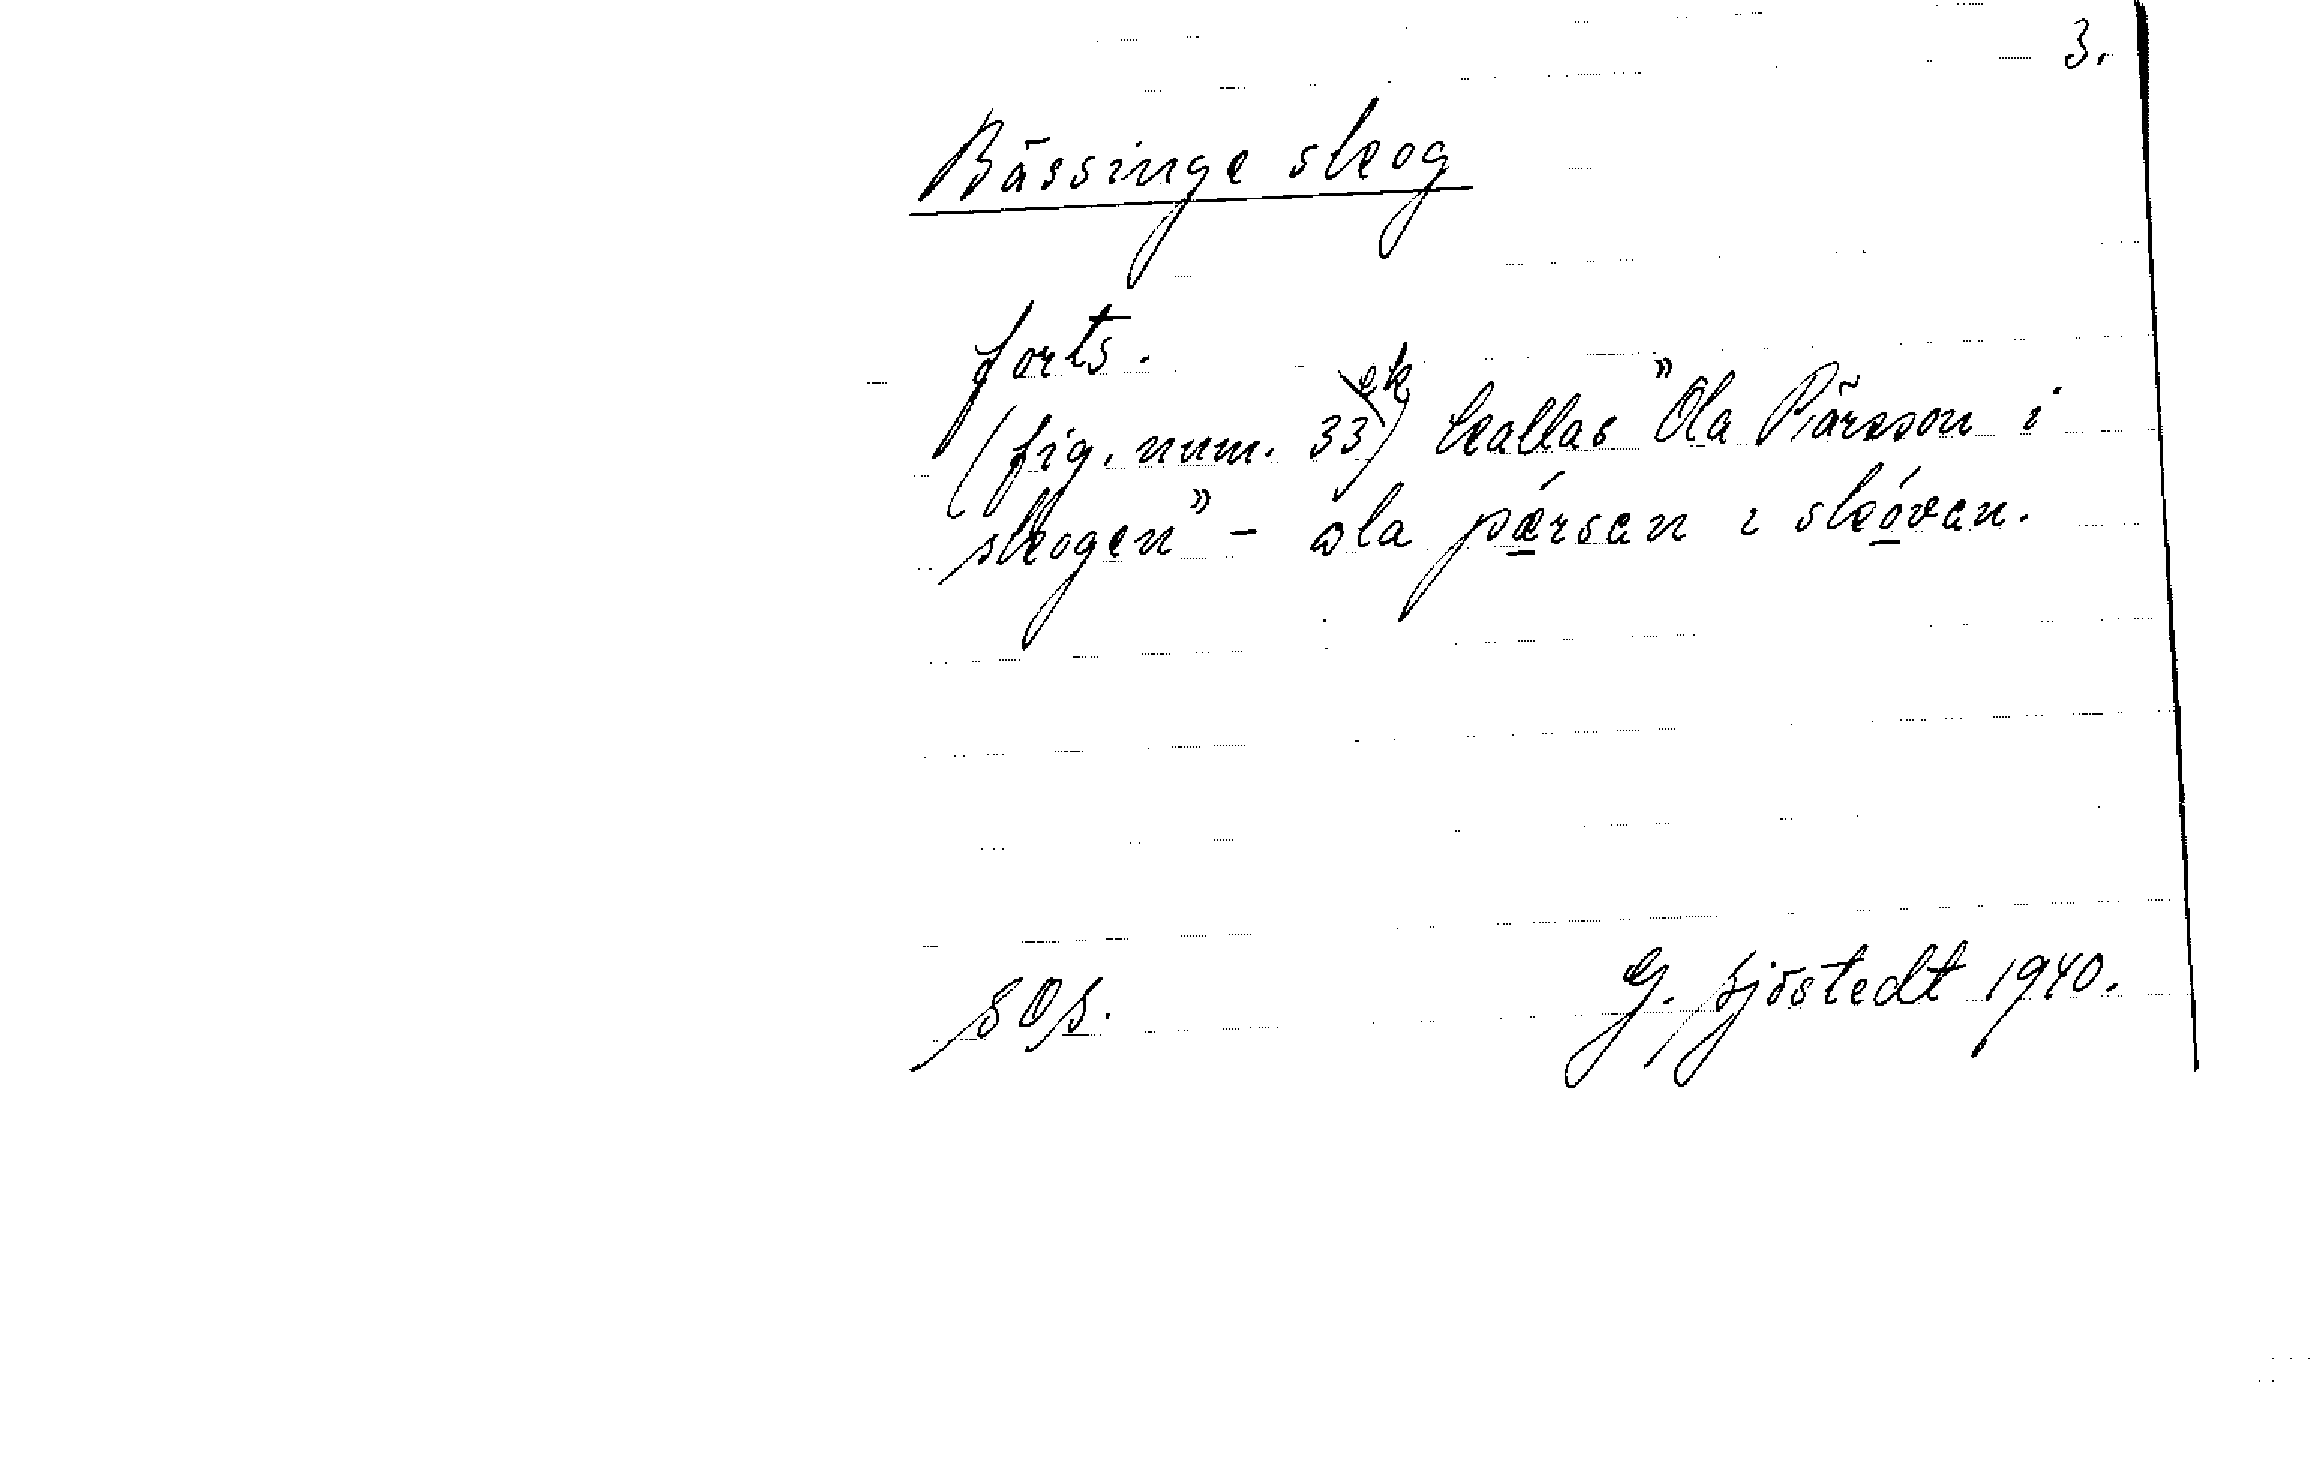 3.
Bässinge skog
forts.
(fig. num. 33 ek) kallas "Ola Pärsson i
skogen" - ola pǽrsan ı skóvan.
SOS. G. Sjöstedt 1940.